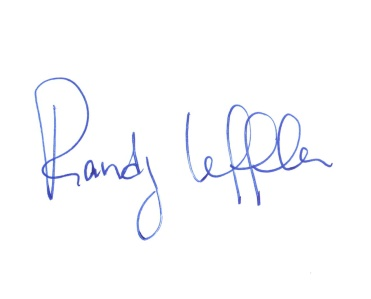 Randy Leffler